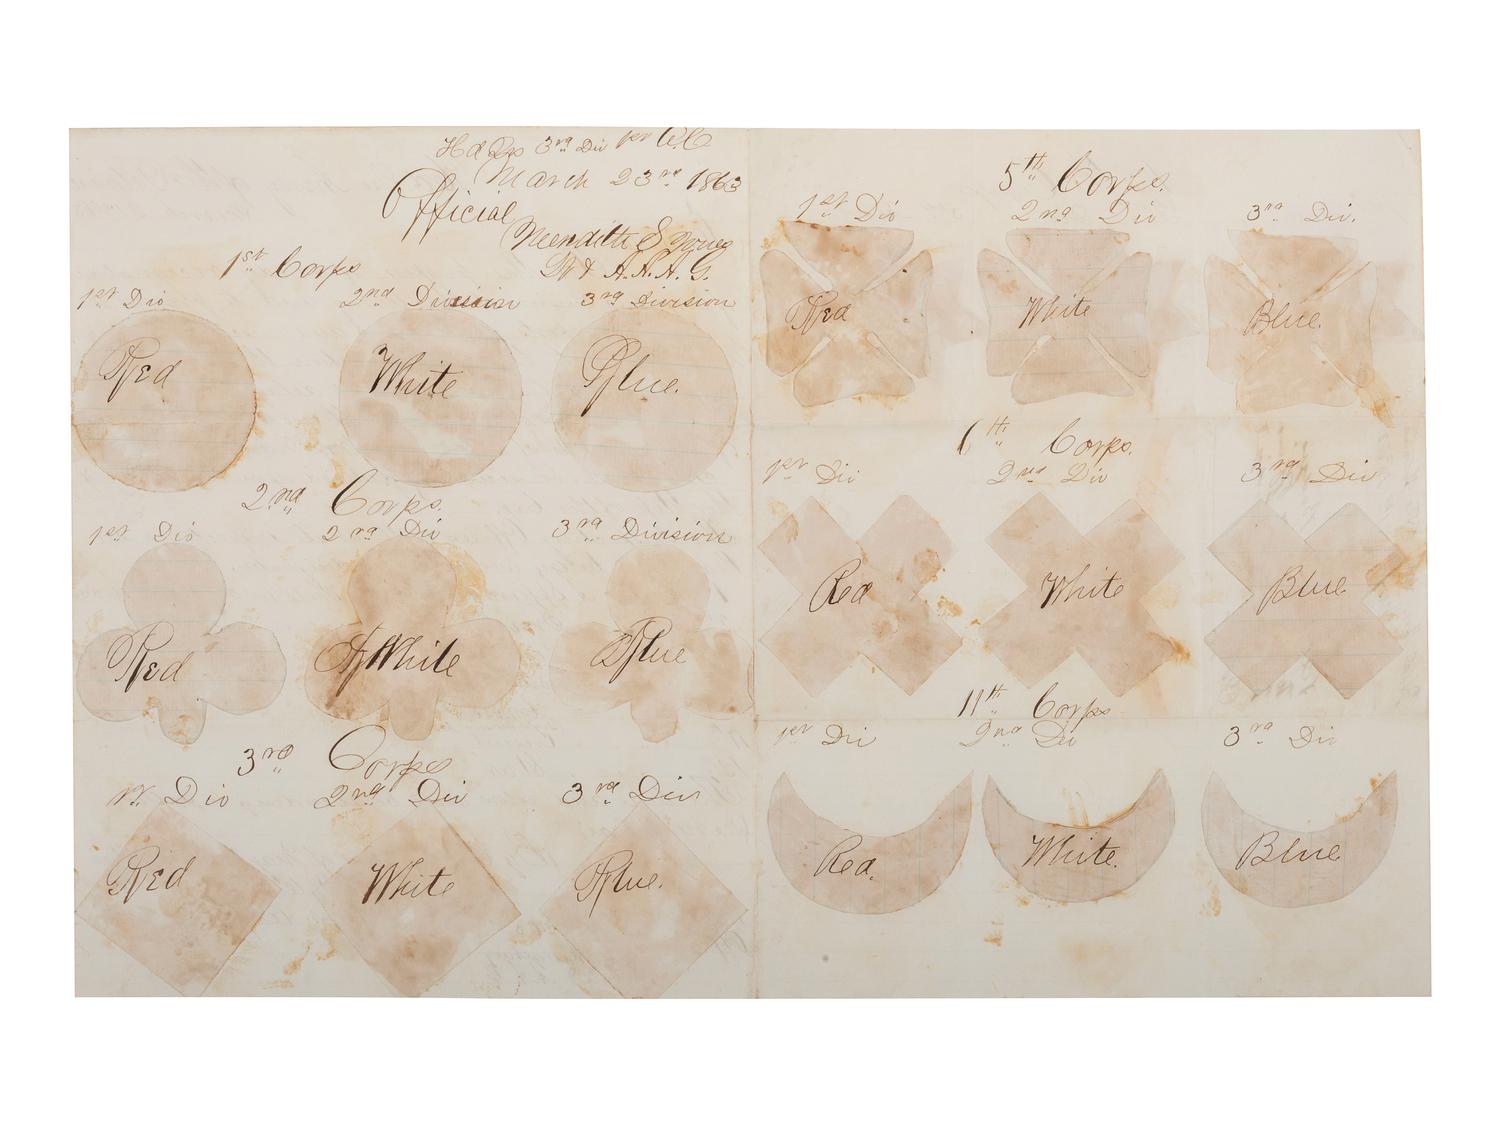 Hd Qrs 3rd Div 1st A.C
March 23rd 1863
Official
Meredith L Jones
Lt & A.A.A.G.
1st Corps
1st Div 2nd Division 3rd Division
Red White Blue.
2nd Corps.
1st Div 2nd Div 3rd Division
Red White Blue
3rd Corps
1st Div 2nd Div 3rd Div
Red White Blue.
5th Corps.
1st Div 2nd Div 3rd Div.
Red White Blue.
6th Corps.
1st Div 2nd Div 3rd Div
Red White Blue
11th Corps
1st Div 2nd Div 3rd Div
Red. White. Blue